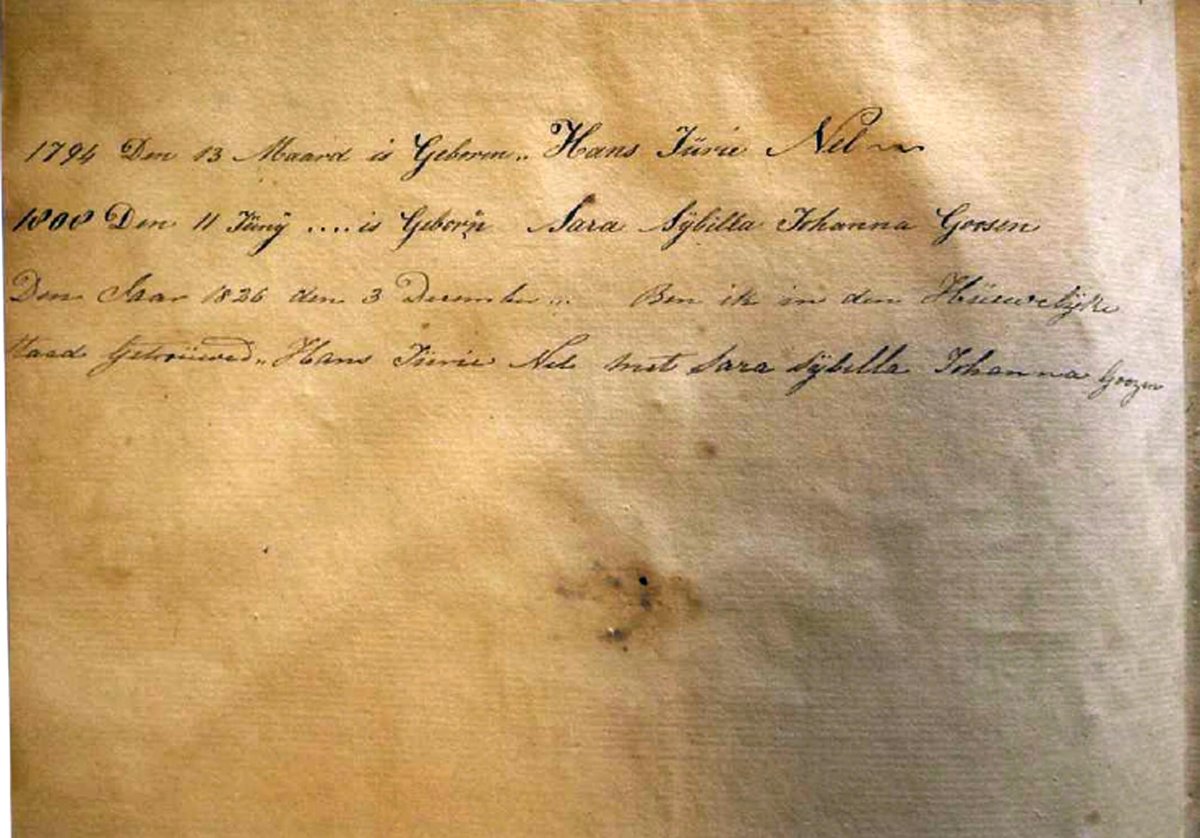 1794 Den 13 Maard is Geboren.. Hans Jürie Nel
1808 Den 11 Jünÿ .... is Geborn Sara Sÿbilla Johanna Goosen
Den Jaar 1826 den 3 December ... Ben ik in den Hüewelÿke
Staad Getroüwed.. Hans Jürie Nel met Sara Sÿbilla Johanna Goozen